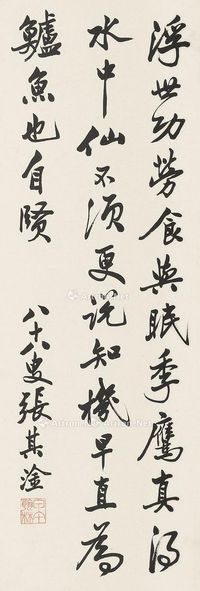 浮世功勞食與眠季鷹真得
水中仙不須更說知機早直為
鱸魚也自賢
八十八叟張其淦